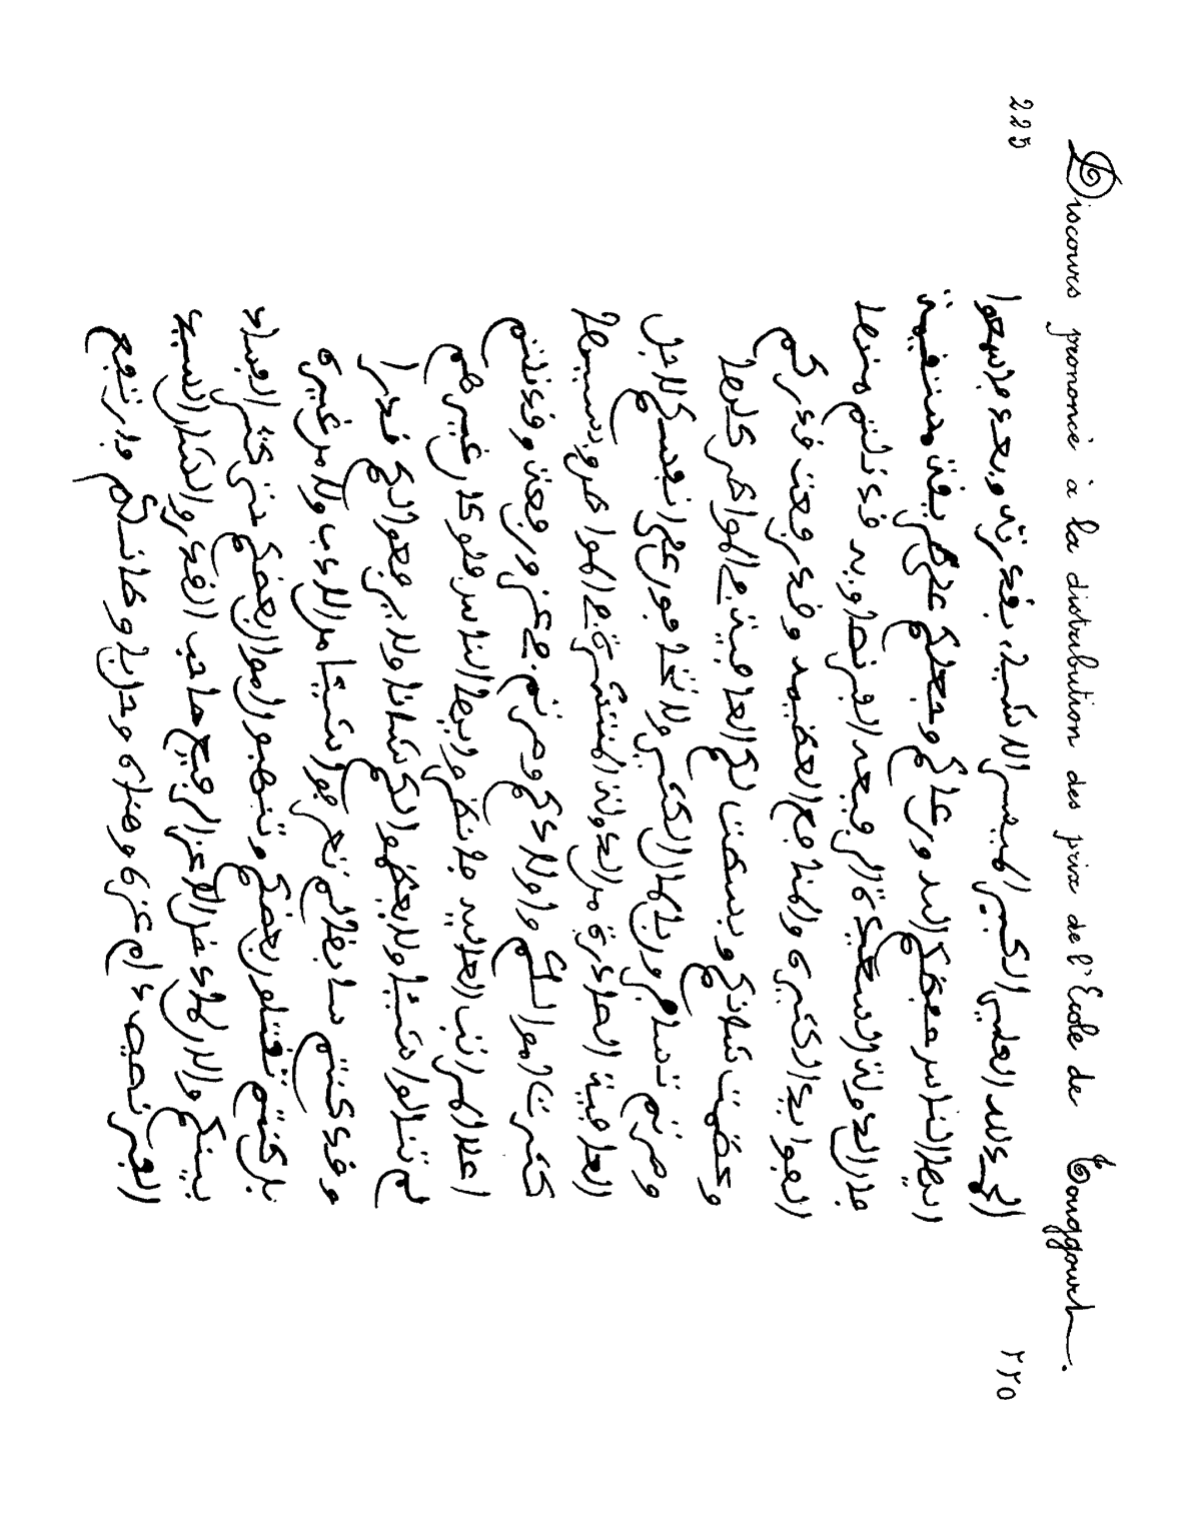 Discours prononcé à la distribution des prix de l'Ecole de Touggourt.
225 ٢٢٥
الحمد لله العلي الكبير الميسر الاشياء بقدرته وبعد فاسمعوا
ايها الناس حفظكم الله ورعاكم وجعلكم على طريقة مستقيمة
فان الدولة السعيدة الرفيعة الفرنصاوية قد نلتم منها
الفوايد الكثيرة والمنافع العظيمة وقد رفعت قدركم
وعظمت شانكم وبسطت لكم العافية في المواطن كلها
وصرتم تسافرون بالمال الكثير ولا تخافون على انفسكم لاجل
العافية الصادرة من الدولة المنتشرة في المواطن وبسببها
كثرت اموالكم واولادكم وصرتم في عز ورفعة وقد نلتم
اعلا المراتب العالية فانظروا ايها الناس فلو كان غيرهم
لم تنالوا شيئا ولا يعظموا لكم شانا ولا يرفعوا لكم قدرا
وقد كنتم سابقا لم تعرفوا شيئا من الادب ولا من غيره
بل كنتم تقتلون بعضكم وتنهبون اموال بعضكم حتى كثر الفساد
بينكم والان الاعز الرفيع صاحب القدر والمكان السيد
دام عزه وهناه وارتفع